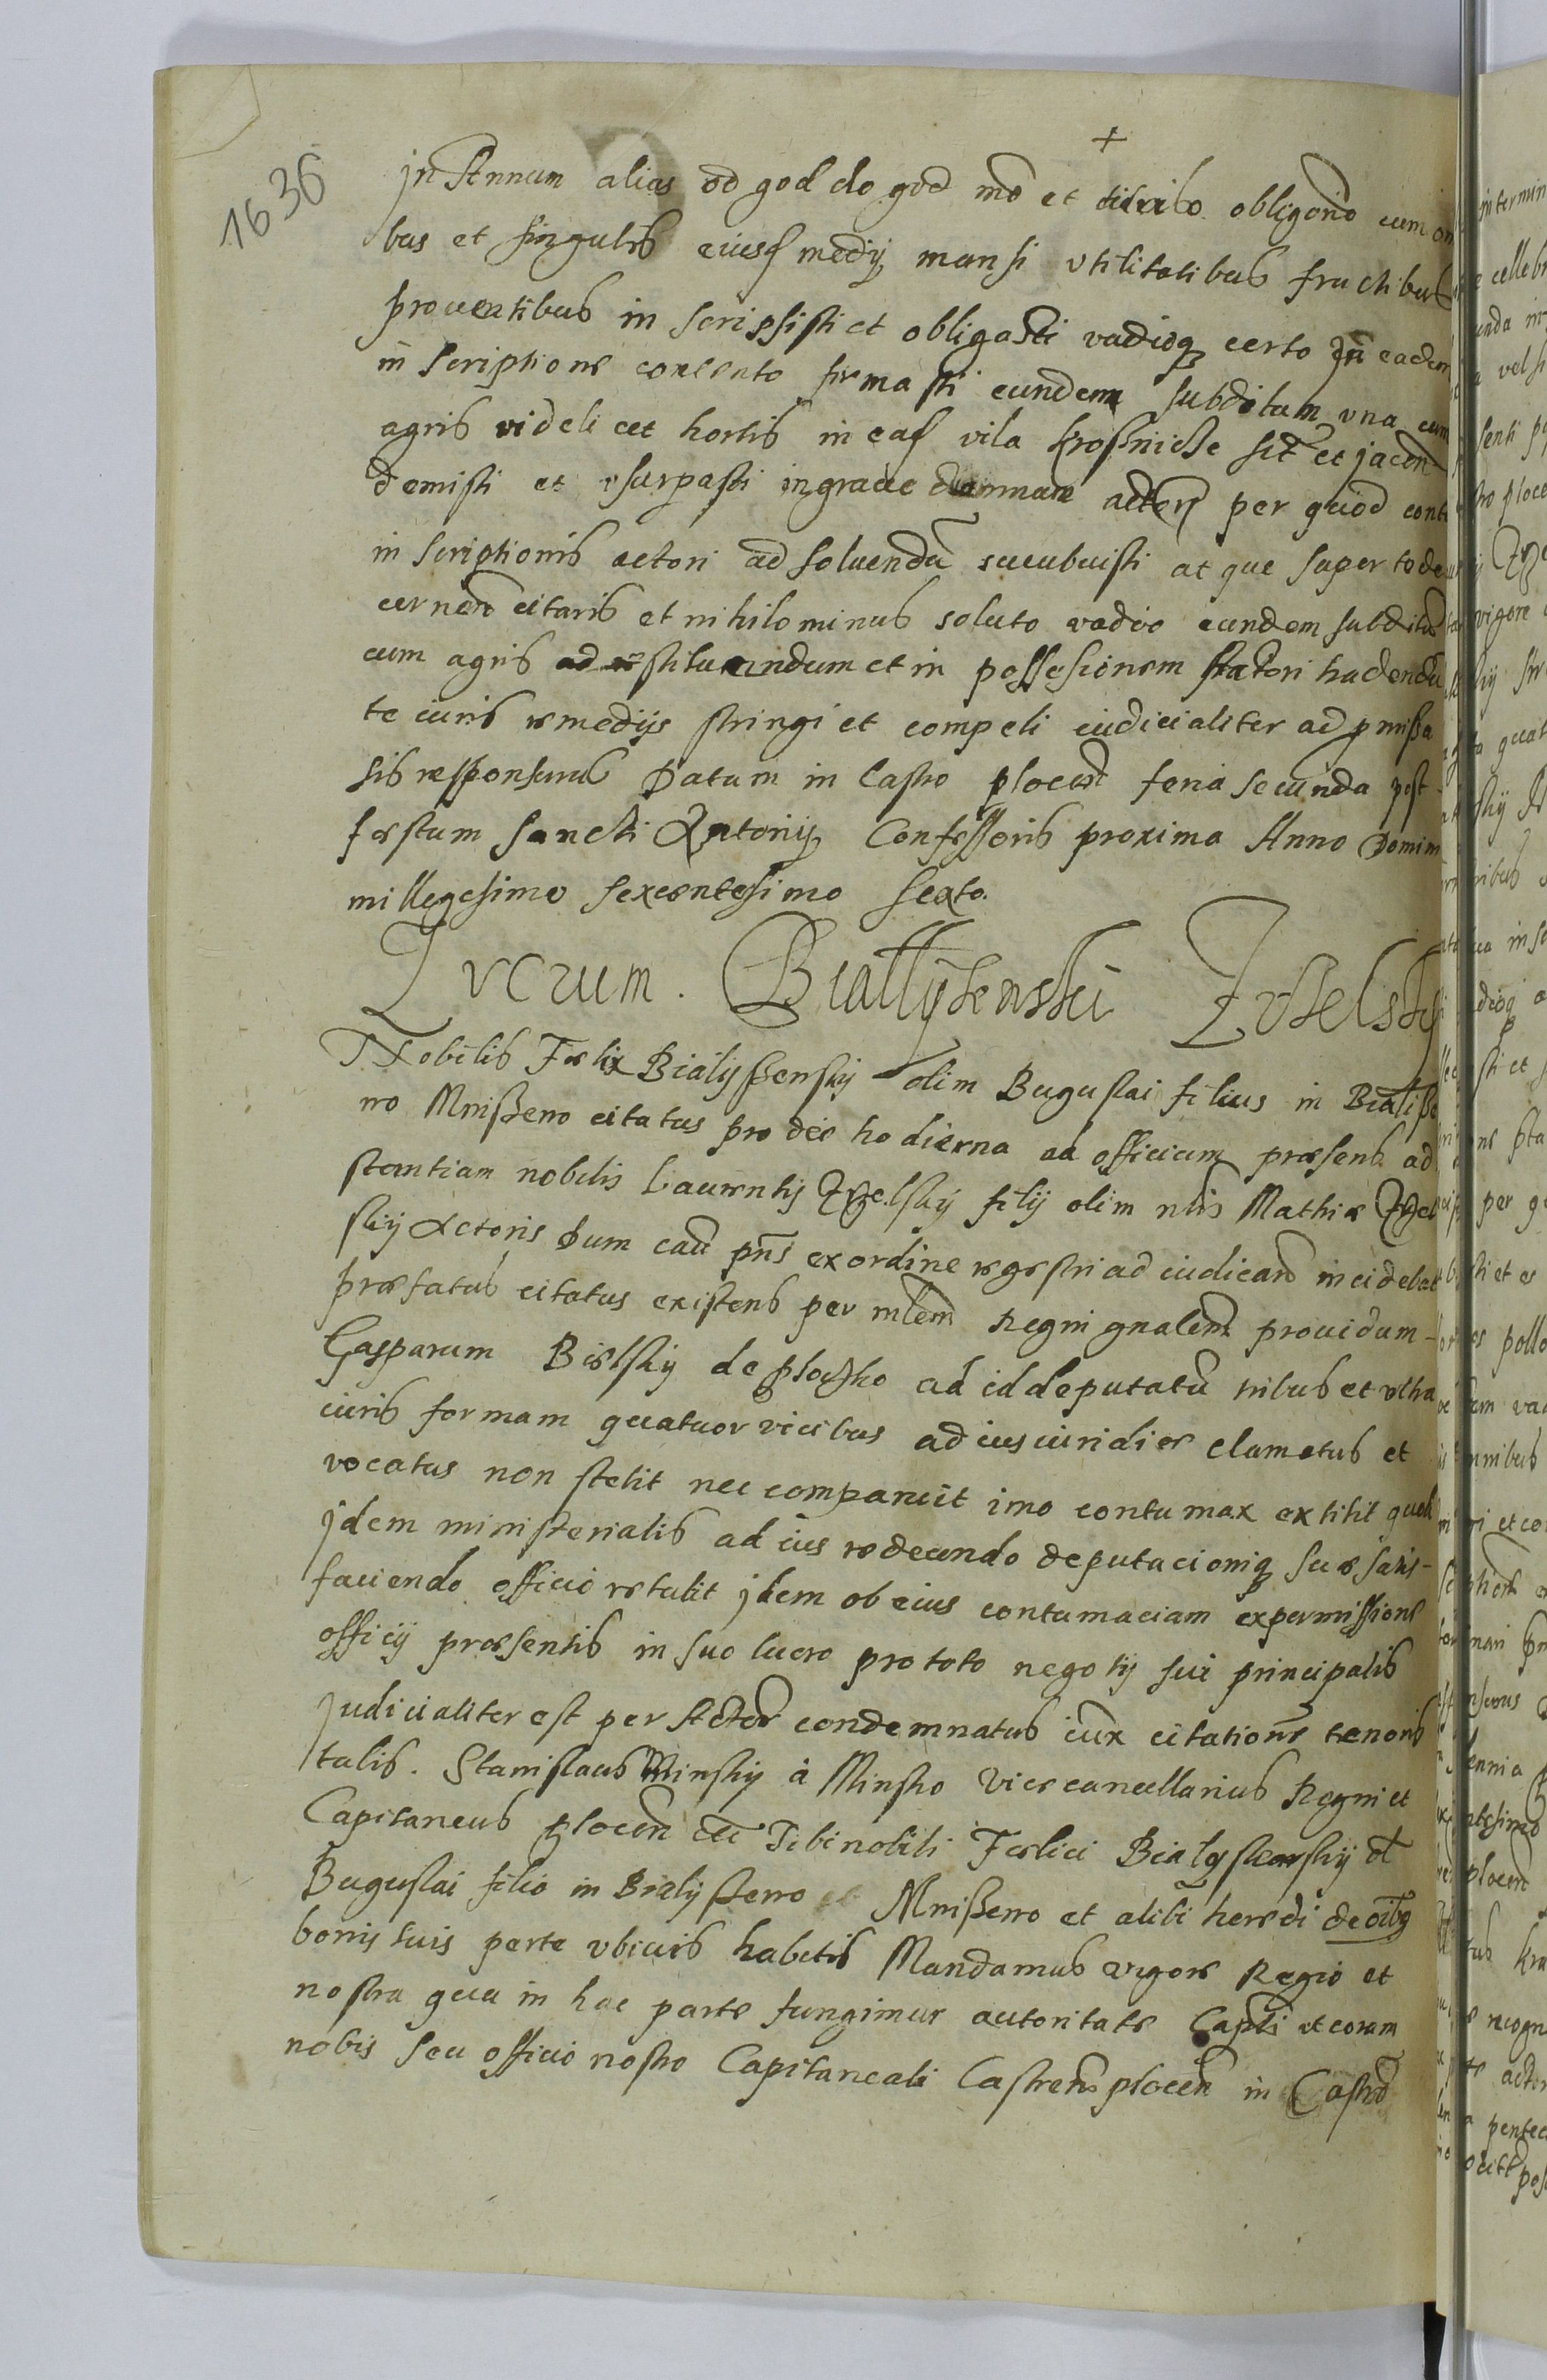 1636
+
jn Annum alias od god do god mo et titulo obligono cum om
bus et singulis eiusf medij mansi vtilitatibus fructibus
prouentibus in scripsisti et obligasti vadioq certo In eadem
in scriptione contento firmasti eundem subditum vna cum
agris videlicet hortis in eaf vila Krosnicze sit et jacen
demisti et vsurpasti in graue damnum actoris per quod cont
in scriptionis actori ad soluendu sucubuisti atque super tode
cernen citaris et nihilominus soluto vadio eundem subditu
cum agris ad restituendum et in possesionem Actori tradendu
te iuris remedijs stringi et compeli iudicialiter ad pmissa
sis responsurus Datum in Castro plocen feria secunda post
festum Sancti Antonij Confessoris proxima Anno Domini
millegesimo sexcentesimo sexto.
Lvcrum. Biallyssenski Izdelsky
Nobilis Foelix Bialyssenskij olim Buguslai filius in Bialisse
no Mnisseno citatus pro die hodierna ad officium præsens ad
stantiam nobilis Laurentij filij olim nlis Mathiæ
skij Actoris dum caũ pñs ex ordine regestri ad iudicand incidebat
præfatus citatus existens per mlem Regni gnalem prouidum
Gasparum Bielskij de Ploczko ad id deputatũ tribus et vltra
iuris formam quatuor vicibus ad ius iuridice clamatus et
vocatus non stetit nec comparuit imo contumax extitit quod
jdem ministerialis ad ius redeundo deputacioniq suæ satis-
faciendo officio retulit jdem ob eius contumaciam ex permissione
officij præsentis in suo lucro pro toto negotij sui principalis
judicialiter est per Actor condemnatus iux citationis tenoris
talis. Stanislaus Minskij à Minsko Vicecancellarius Regni et
Capitaneus plocen etc Tibi nobili Foelici Bialyssenskij ol
Buguslai filio in Bialysseno Mnisseno et alibi heredi de oibq
bonis tuis parte vbiuis habitis Mandamus vigore Regio et
nostra qua in hac parte fungimur autoritate Capli vt coram
nobis seu officio nostro Capitaneali Castrens plocen in Castro